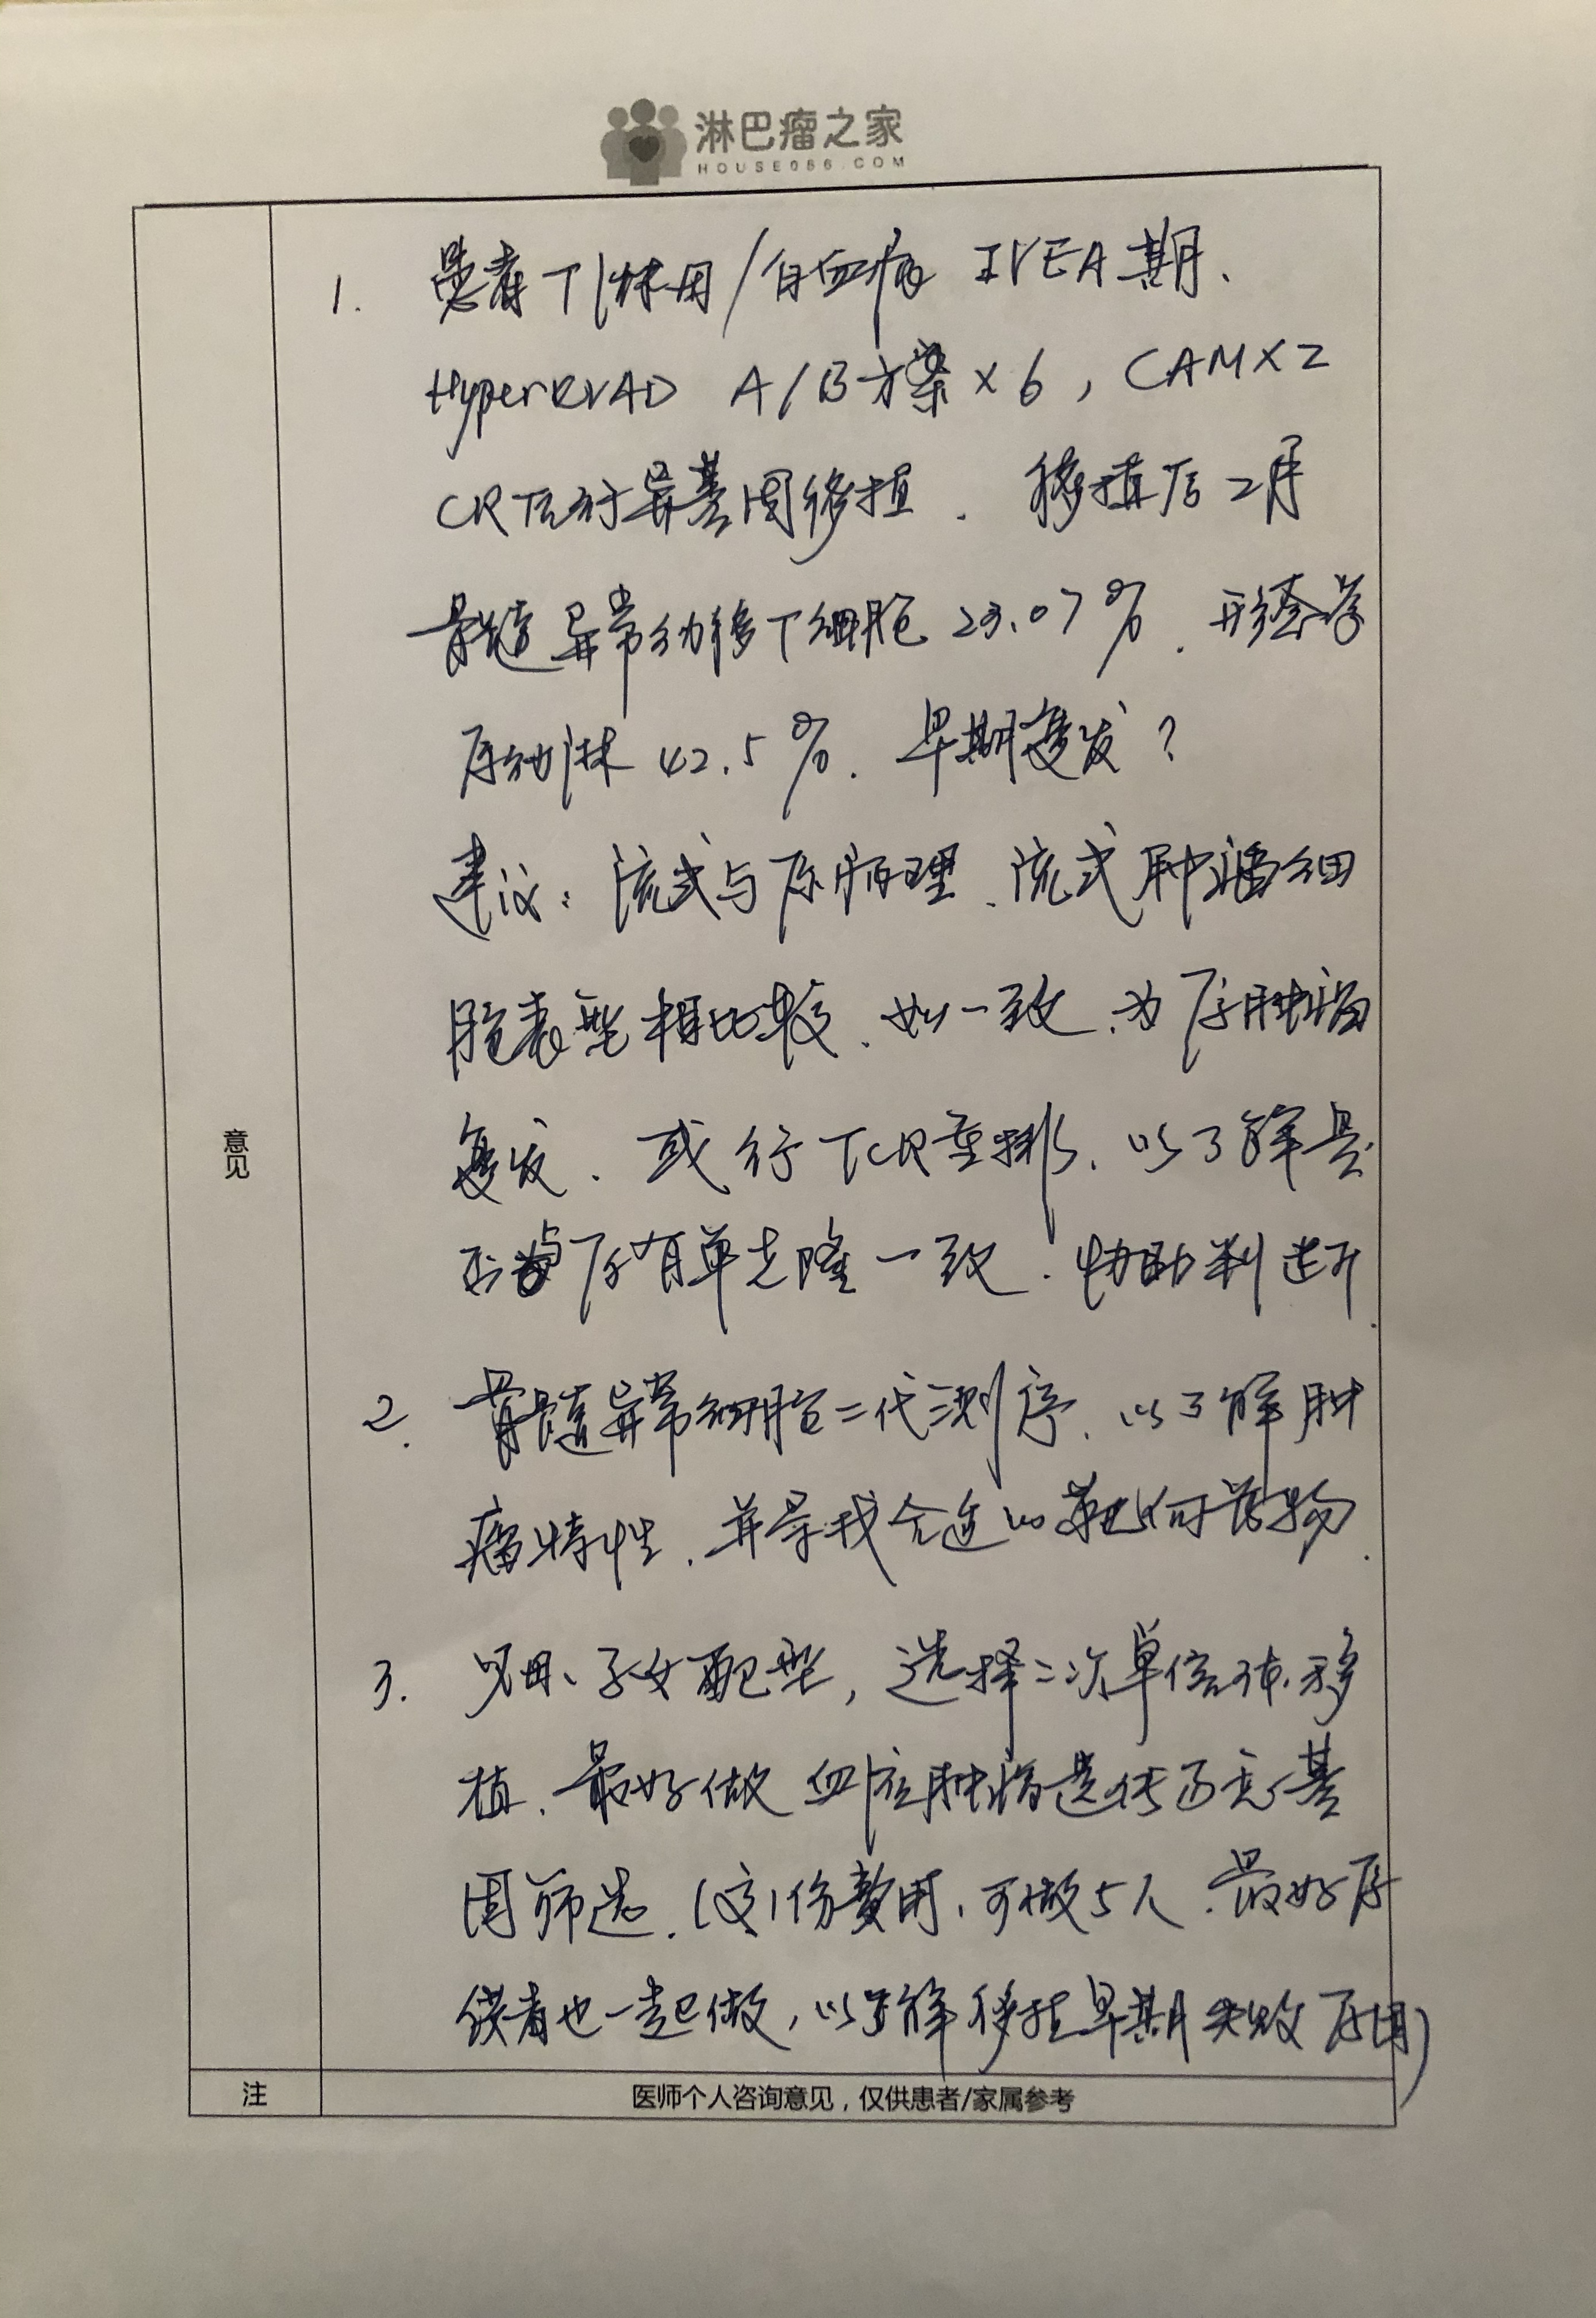 淋巴瘤之家
HOUSE086.COM
意见
1. 患者T淋母/白血病 IVEA期、
HyperCVAD A/B方案×6, CAM×2
CR后行异基因移植. 移植后2月
骨髓异常幼稚T细胞23.07%. 形态学
原幼淋42.5%. 早期复发?
建议: 流式与原病理、流式肿瘤细
胞表型相比较、如一致、为原肿瘤
复发. 或行TCR重排、以了解是
否与原有单克隆一致. 协助判断.
2. 骨髓异常细胞二代测序、以了解肿
瘤特性、并寻找合适的靶向药物.
3. 父母、子女配型, 选择二次单倍体移
植、最好做血液肿瘤遗传易感基
因筛选. (交1份费用, 可做5人. 最好原
供者也一起做, 以了解移植早期失败原因)
注
医师个人咨询意见,仅供患者/家属参考